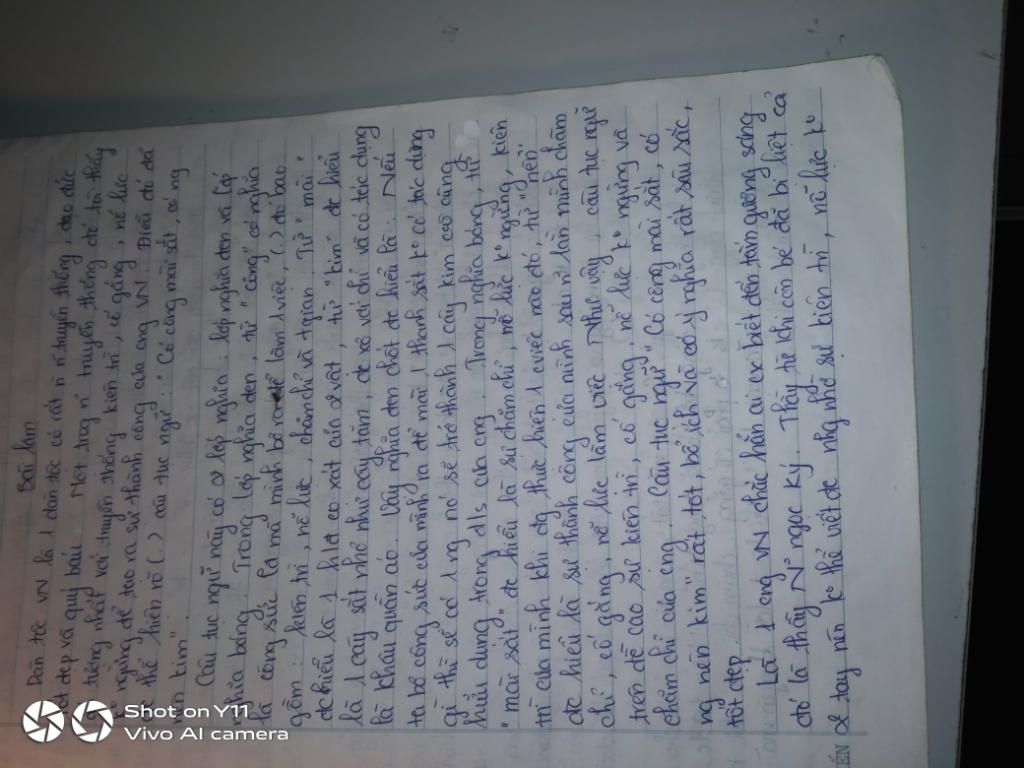 Bài làm
Dân tộc VN là 1 dân tộc có rất n` n` truyền thống, đạo đức
tốt đẹp và quý báu. Một trog n~ truyền thống đó tôi thấy
tiếng nhất với truyền thống kiên trì, cố gắng, nổ lực
ko ngừng để tạo ra sự thành công của cng VN. Điều đó đã
thể hiện rõ (.) câu tục ngữ: "Có công mài sắt, có ng
nên kim".
Câu tục ngữ này có 2 lớp nghĩa: lớp nghĩa đen và lớp
nghĩa bóng. Trong lớp nghĩa đen, từ "công" có nghĩa
là công sức mà mình bỏ ra để làm 1 việc, (.) đó bao
gồm: kiên trì, nổ lực, chăm chỉ và tgian. Từ "mài"
đc hiểu là 1 cọ xát của 2 vật, từ "kim" đc hiểu
là 1 cây sắt nhỏ như cây tăm, đc xỏ với chỉ và có tác dụng
là khâu quần áo. Vậy nghĩa đen chốt đc hiểu là: Nếu
ta bỏ công sức của mình ra để mài 1 thanh sắt ko có tác dụng
gì thì sẽ có 1 ng nó sẽ trở thành 1 cây kim vô cùng
hữu dụng trong đ/s của cng. Trong nghĩa bóng, từ
"mài sắt" đc hiểu là sự chăm chỉ, nổ lực ko ngừng, kiên
trì của mình khi đg thực hiện 1 việc nào đó, từ "nên"
đc hiểu là sự thành công của mình sau n` lần mình chăm
chỉ, cố gắng, nổ lực làm việc. Như vậy, câu tục ngữ
trên đề cao sự kiên trì, cố gắng, nổ lực ko ngừng và
chăm chỉ của cng. Câu tục ngữ "Có công mài sắt, có
ng nên kim" rất tốt, bổ ích và có ý nghĩa rất sâu sắc,
tốt đẹp
Là 1 cng VN chắc hẳn ai cx biết đến tấm gương sáng
đó là thầy N~ ngọc Ký. Thầy từ khi còn bé đã bị liệt cả
2 tay nên ko thể viết đc nhg nhờ sự kiên trì, nổ lực ko
Shot on Y11
Vivo AI camera